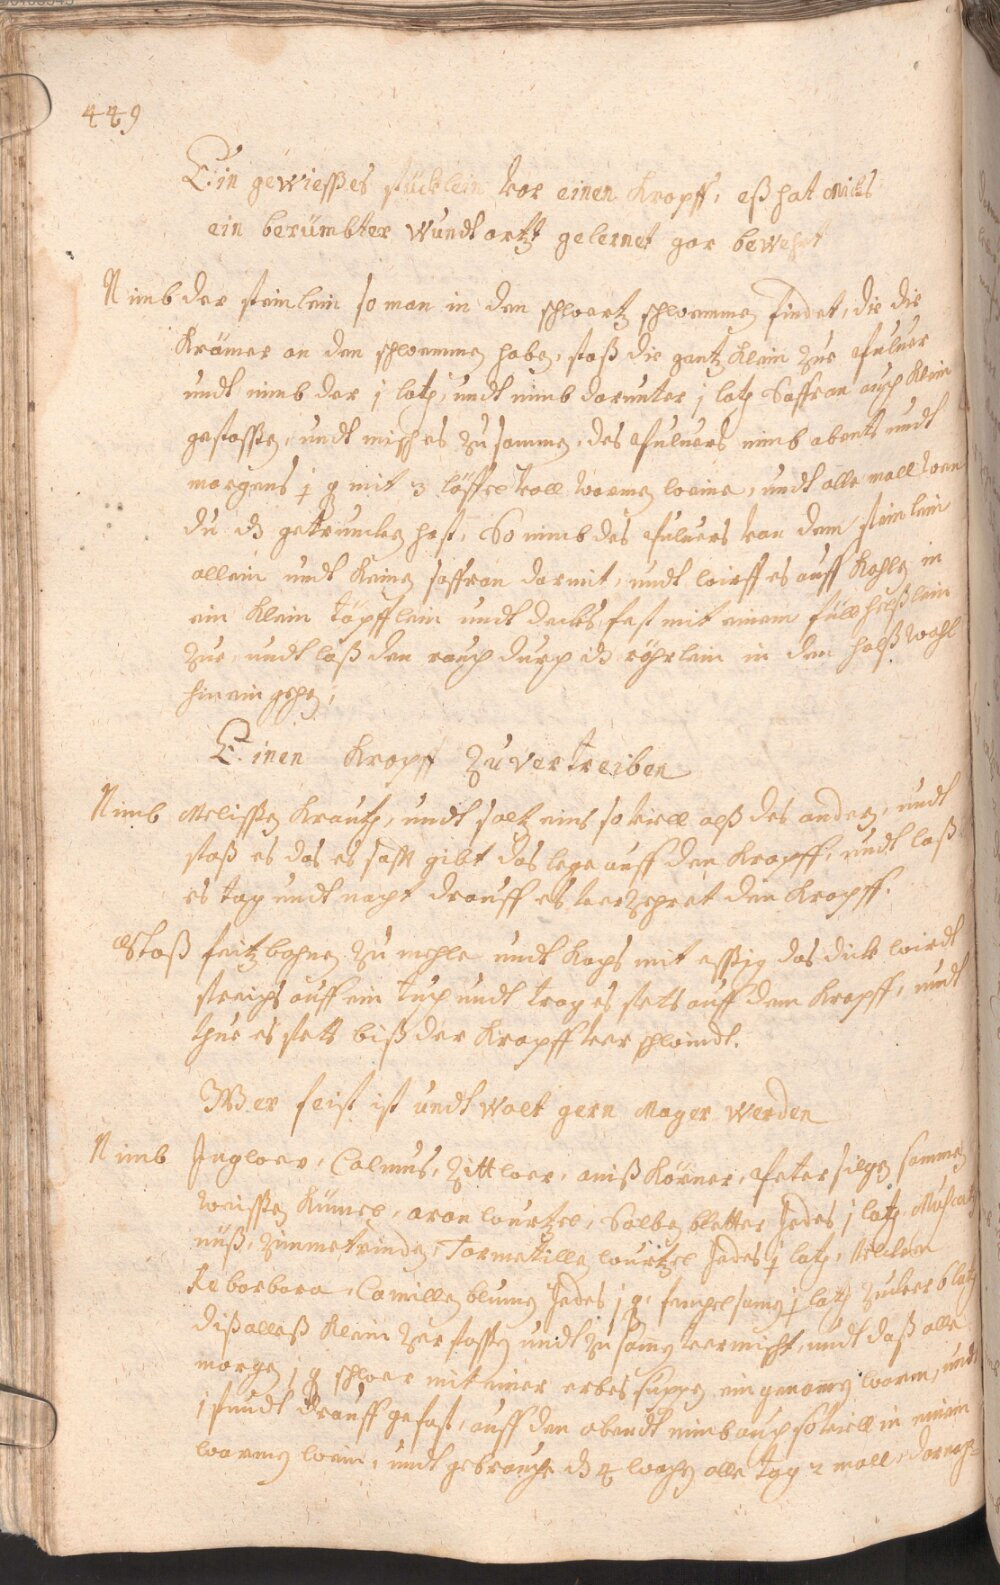 449
Ein gewiesses stücklein vor einen Kropff, eß hat mich
ein berümbter Wundt artzt gelernet gar bewehrt
Nimb der steinlein so man in den schwartz schwemmen findet, die die
Krämer an den schwemmen haben, stoß die gantz klein zue Puluer
undt nimb der j loth, undt nimb darunter j loth Saffran auch klein
gestossen, undt misch es zusammen, des Puluers nimb abents undt
morgens j q mit 3 löffel voll warmen weine, undt alle mall wen
du ds getruncken hast, So nimb des Puluers von dem steinlein
allein undt keinen saffran darmit, undt wirff es auff Kohlen in
ein klein töpfflein undt decks fest mit einem füllhelßlein
zue, undt laß den rauch durch ds röhrlein in den halß wohl
hinein gehen,
Einen Kropff zuvertreiben
Nimb Melissen Krauth, undt saltz eins so viell alß des andern, undt
stoß es das es safft gibt das lege auff den Kropff, undt laß
es tag undt nacht drauff es verzehret den Kropff.
Stoß feitzbohnen zu mehle undt Kochs mit essig das dick wirdt
streichs auff ein tuch undt trag es stets auff dem Kropff, undt
thue es stets biß der Kropff verschwindt.
Wer feist ist undt wolt gern Mager werden
Nimb Ingwer, Calmus, Zittwer, aniß Körner, Petersilgen sammen
weissen Kümel, aron wurtzel, Salbey bletter Jedes j loth Muscaten
nüß, Zimmetrinden, Tormetillen wurtzel Jedes j loth,
Rebarbara, Camillen blumen Jedes j q, fenchelsamen j loth Zucker 6 loth
diß alleß klein zerstossen undt zusamen vermischt, undt daß alle
morgen j q schwer mit einer erbes suppen ein genomen warm, undt
j stundt drauff gefast, auff den abendt nimb auch so viell in einem
warmen wein, undt gebrauche ds 4 wochen alle tag 2 mall, darnach